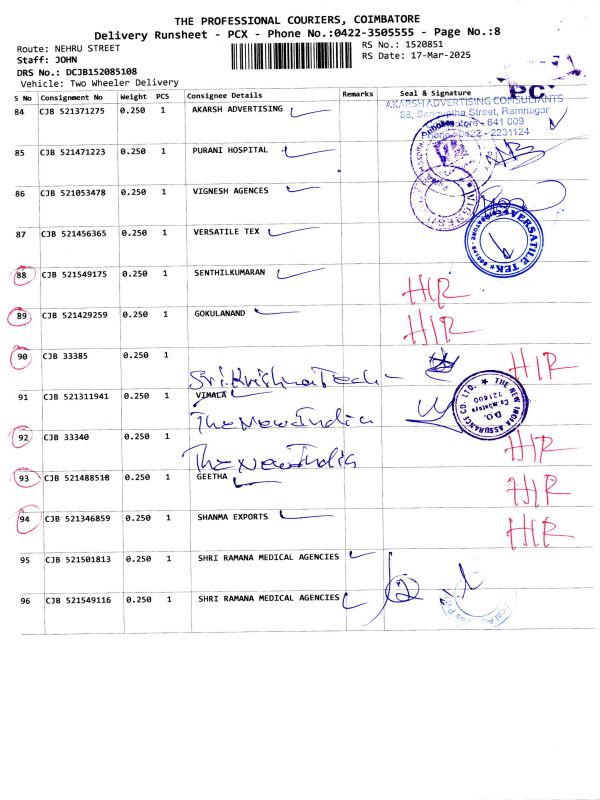 THE PROFESSIONAL COURIERS, COIMBATORE
Delivery Runsheet - PCX - Phone No.:0422-3505555 - Page No.:8
Route: NEHRU STREET
RS No.: 1520851
Staff: JOHN
RS Date: 17-Mar-2025
DRS No.: DCJB152085108
Vehicle: Two Wheeler Delivery
S No Consignment No Weight PCS Consignee Details Remarks Seal & Signature
PC
AKARSH ADVERTISING CONSULTANTS
84 CJB 521371275 0.250 1 AKARSH ADVERTISING
38, Street, Ramnagar
- 641 009
0422 - 2231124
85 CJB 521471223 0.250 1 PURANI HOSPITAL
86 CJB 521053478 0.250 1 VIGNESH AGENCES
87 CJB 521456365 0.250 1 VERSATILE TEX
VERSATILE TEK
88 CJB 521549175 0.250 1 SENTHILKUMARAN
HIR
89 CJB 521429259 0.250 1 GOKULANAND
HIR
90 CJB 33385 0.250 1
HIR
Sri.Krishna Tech
91 CJB 521311941 0.250 1 VIMALA
THE NEW INDIA ASSURANCE CO. LTD.
D.O.
721600
Coimbatore
The New India
92 CJB 33340 0.250 1
HIR
The New India
93 CJB 521488518 0.250 1 GEETHA
HIR
94 CJB 521346859 0.250 1 SHANMA EXPORTS
HIR
95 CJB 521501813 0.250 1 SHRI RAMANA MEDICAL AGENCIES
96 CJB 521549116 0.250 1 SHRI RAMANA MEDICAL AGENCIES